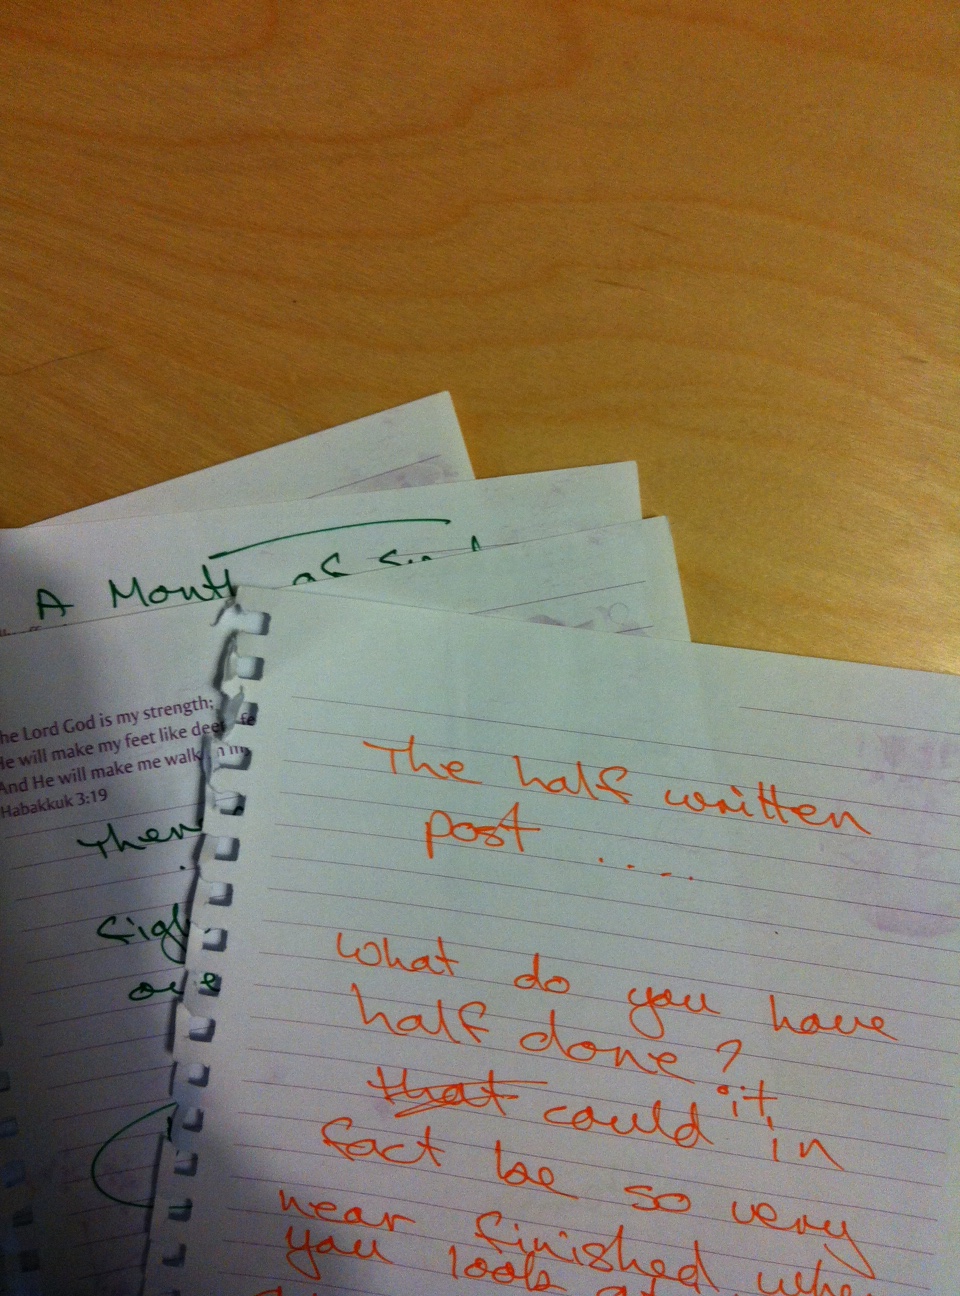 A Month of
he Lord God is my strength;
He will make my feet like deer
And He will make me walk
Habakkuk 3:19
The half written
post .....
What do you have
half done?
that could it in
fact be so very
near finished whe
you look at